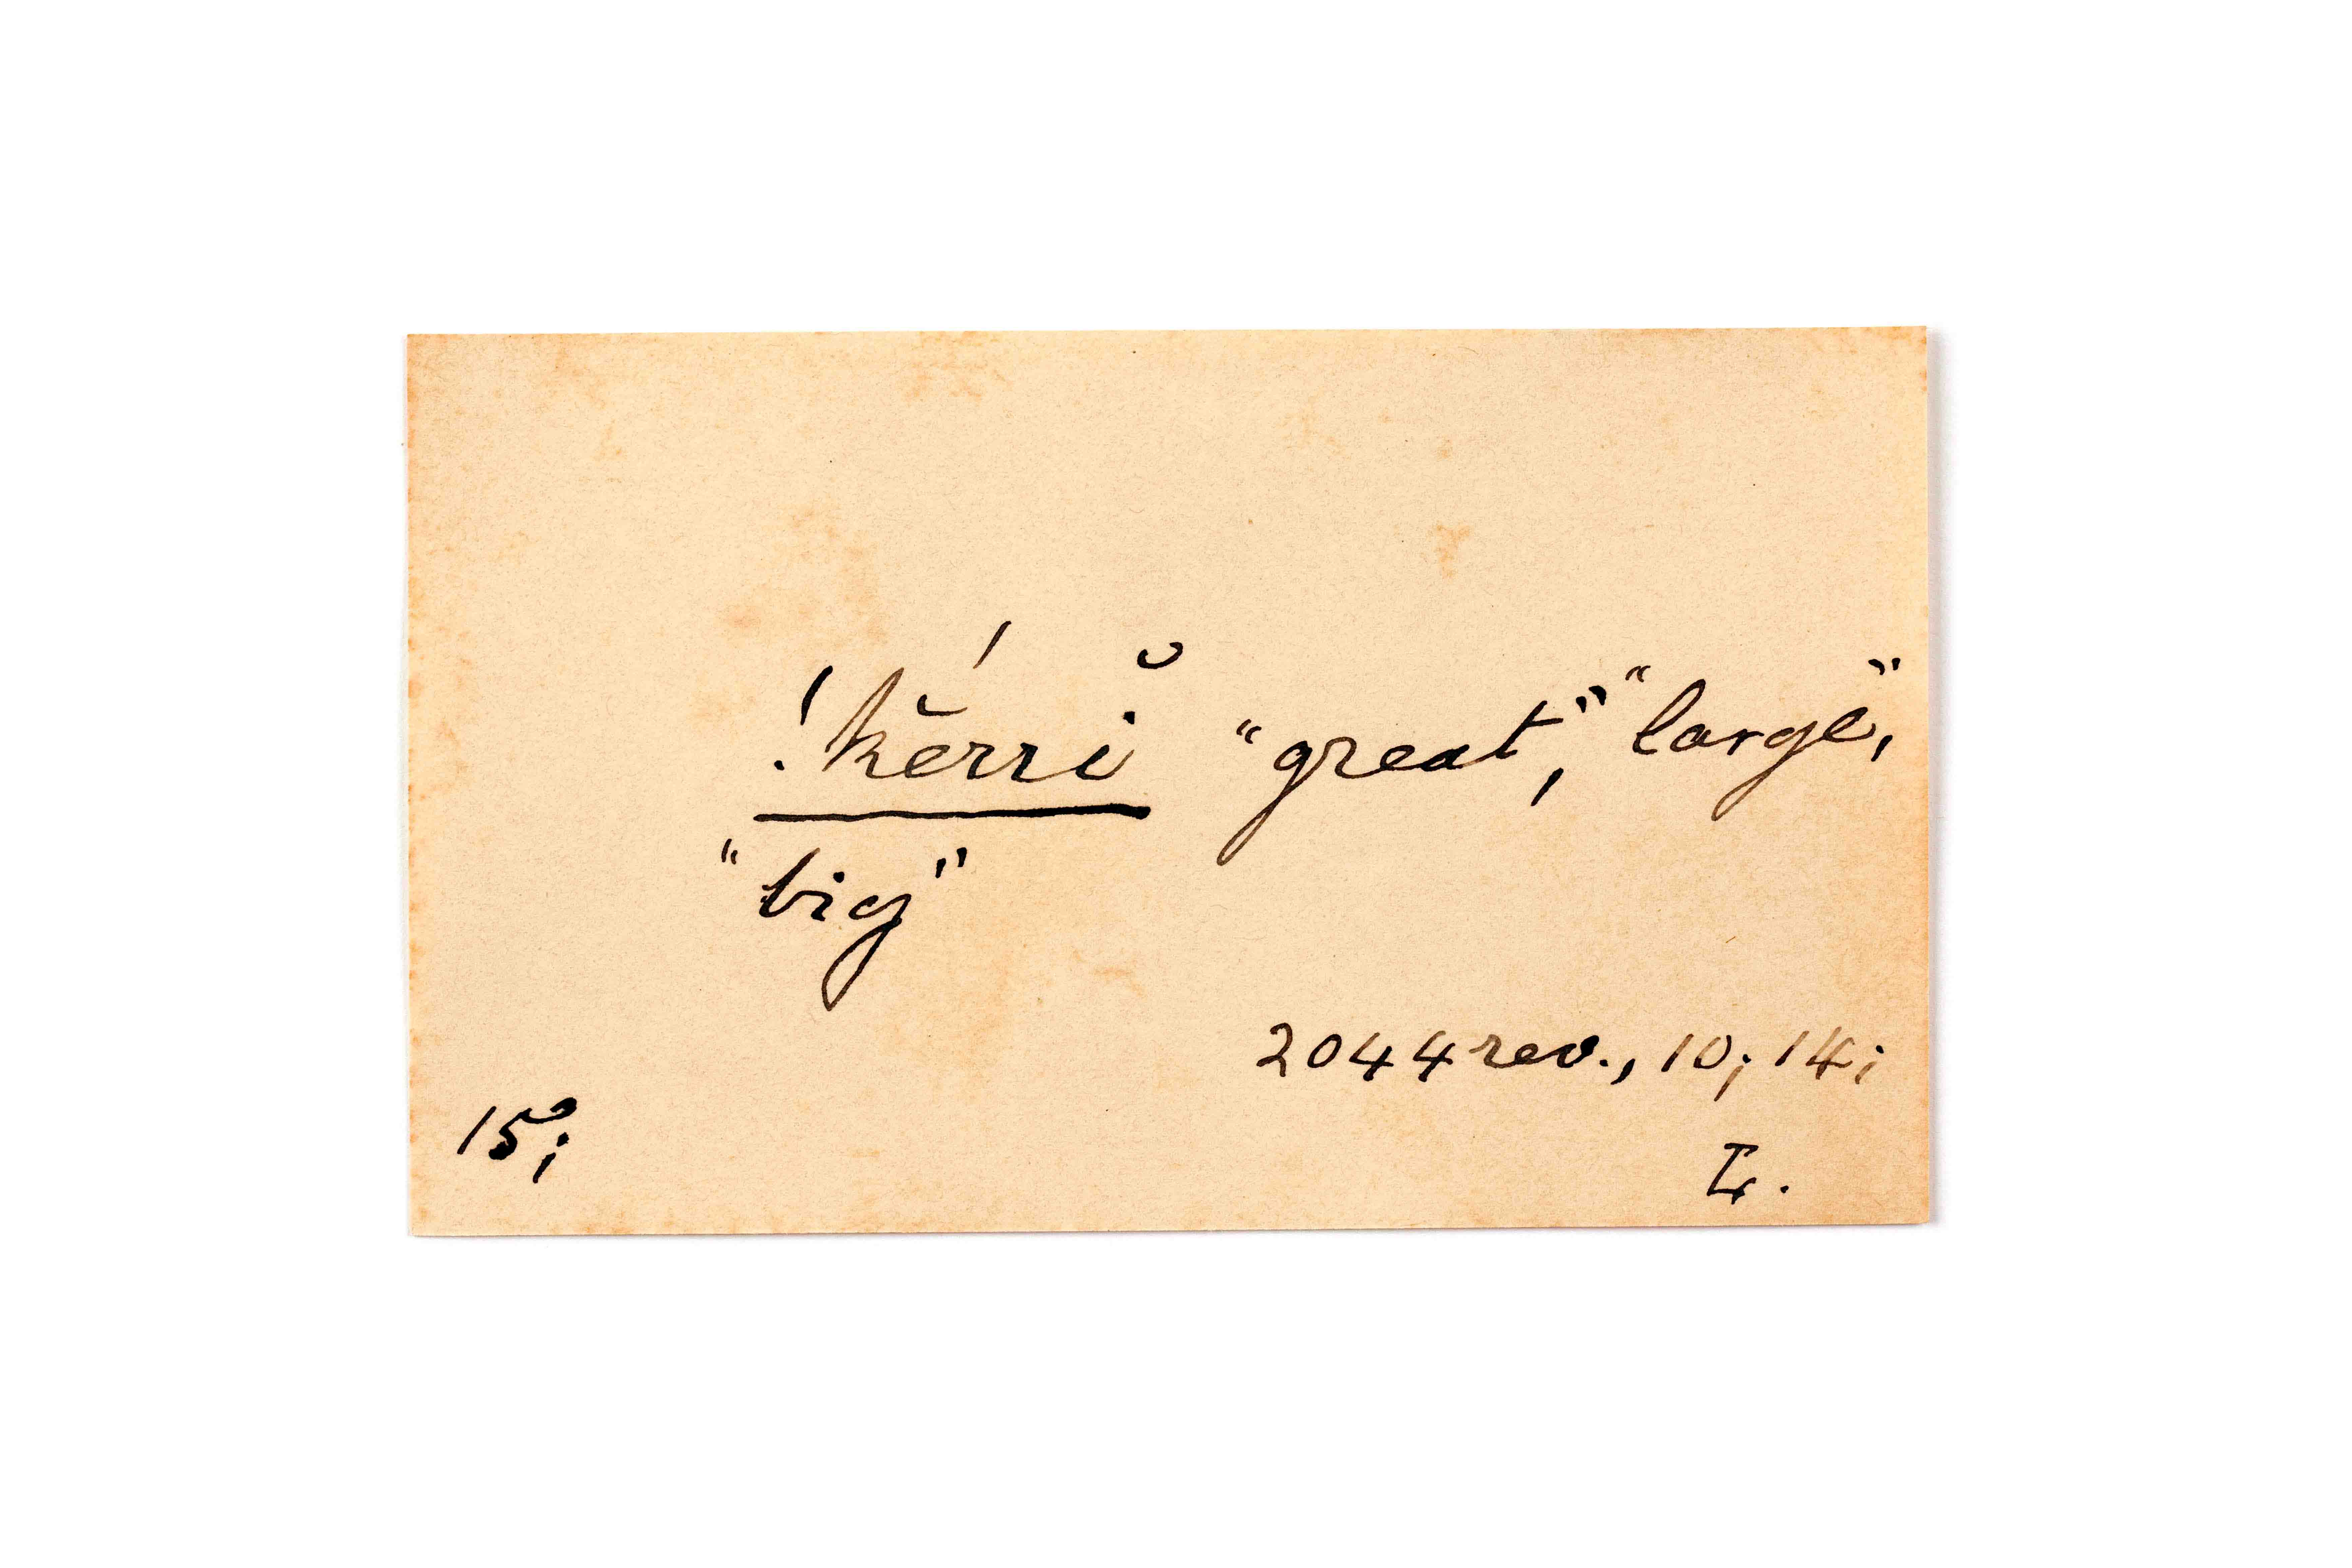 !kĕ́rrĭ "great," "large",
"big"
2044 rev., 10; 14;
15;
L.